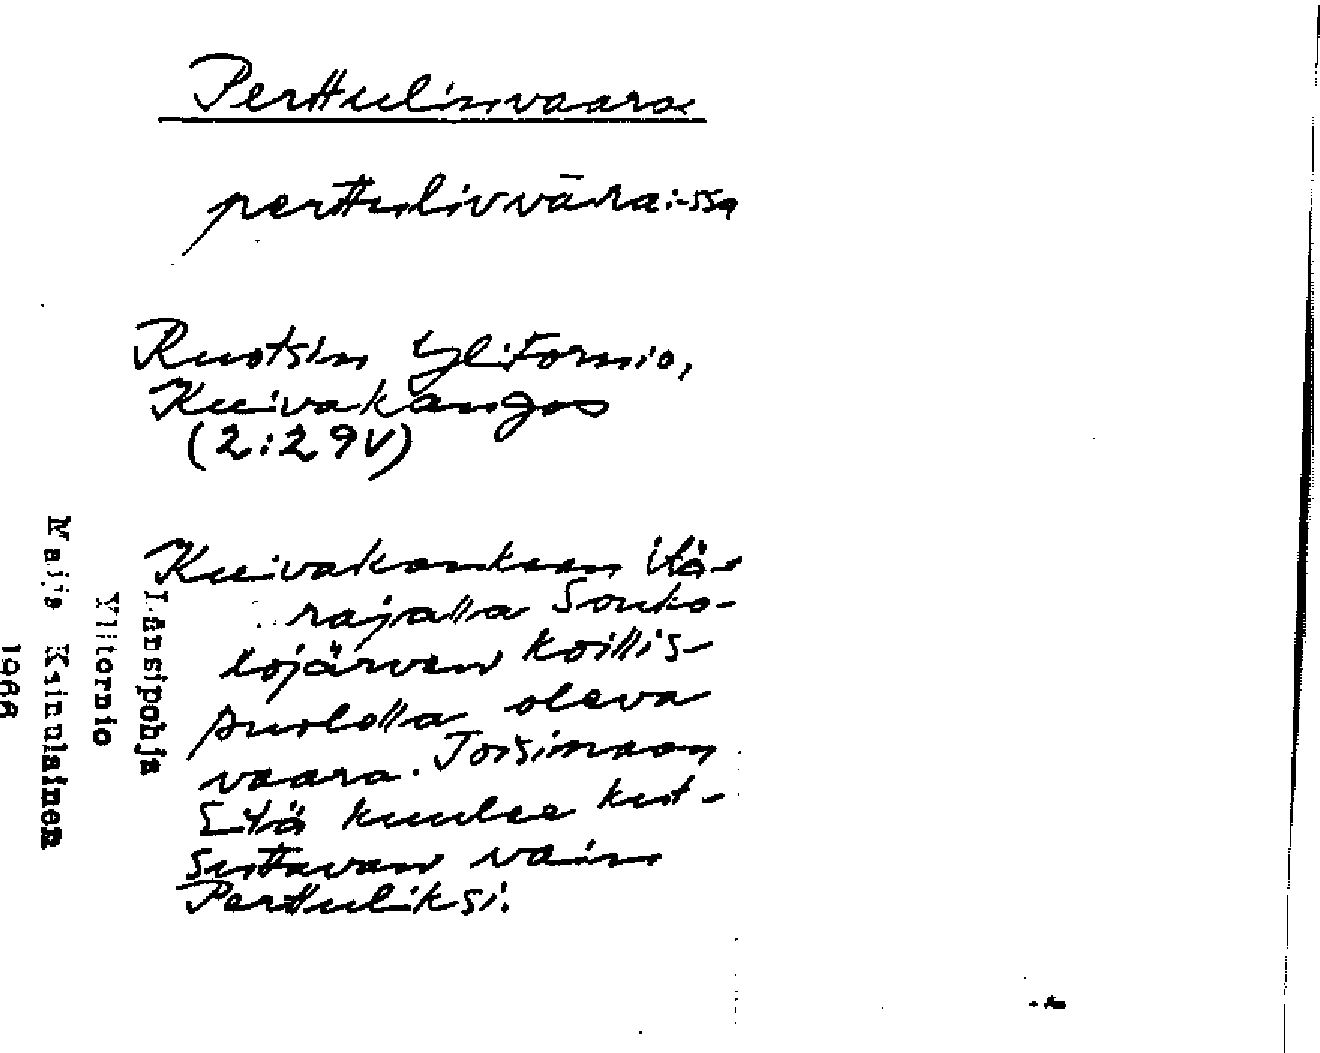 Perttulinvaara
perttulivvāra:-ssa
Ruotsin Ylitornio,
Kuivakangas
(2:29V)
Kuivakankaan itä-
rajalla Souko-
lojärven koillis-
puolella oleva
vaara. Toisinaan
sitä kuulee kut-
suttavan vain
Perttuliksi.
Länsipohja
Ylitornio
Maija Kainulainen
1966